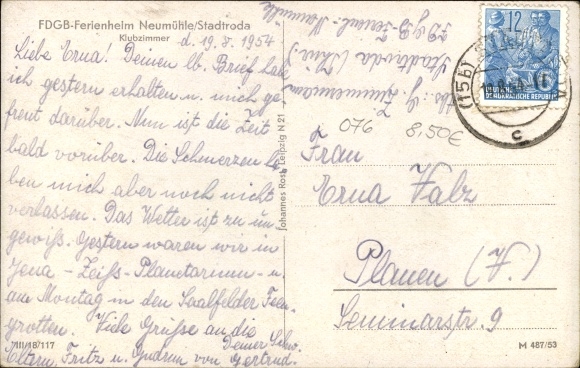 FDGB-Ferienheim Neumühle/Stadtroda
Klubzimmer d. 19.8.1954
Liebe Erna! Deinen lb. Brief habe
ich gestern erhalten u. mich ge-
freut darüber. Nun ist die Zeit
bald vorüber. Die Schmerzen ha-
ben mich aber noch nicht
verlassen. Das Wetter ist zu un
gewiß. Gestern waren wir in
Jena - Zeiß-Planetarium - u.
am Montag in den Saalfelder Feen-
grotten. Viele Grüße an die
Eltern, Fritz u. Gudrun von Deiner Schw.
Gertrud.
VIII/18/117
Johannes Ross, Leipzig N 21
G. Zimmermann
Stadtroda (Thür.)
FDGB-Ferienh. Neumühle
12
DEMOKRATISCHE REPUBLIK
(15b)
c
076 8,50€
Frau
Erna Valz
Plauen (V.)
Seminarstr. 9
M 487/53